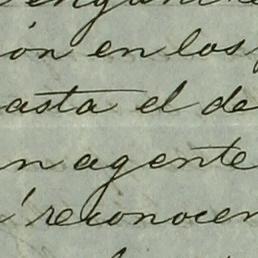 ión en los
asta el de
n agente
reconocer